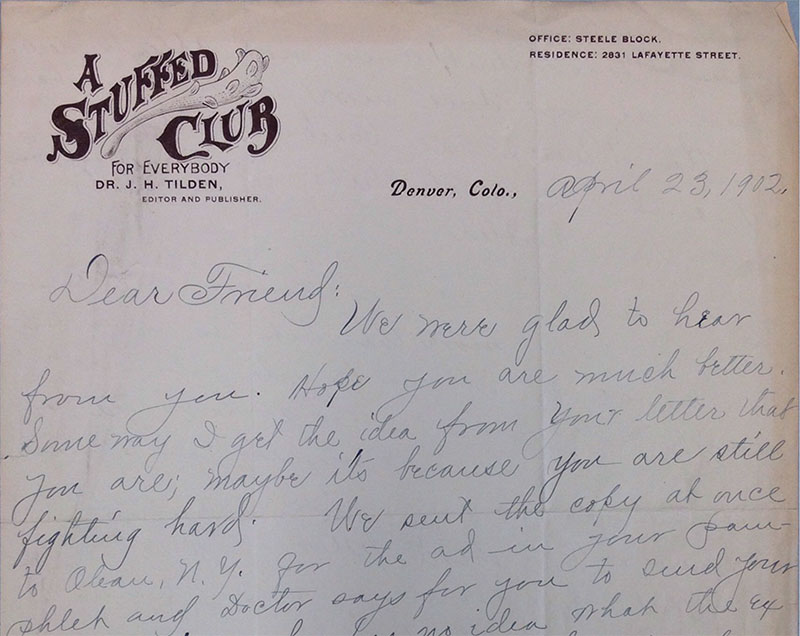 OFFICE: STEELE BLOCK.
RESIDENCE: 2831 LAFAYETTE STREET.
A
STUFFED
CLUB
FOR EVERYBODY
DR. J. H. TILDEN,
EDITOR AND PUBLISHER.
Denver, Colo., April 23, 1902.
Dear Friend:
We were glad to hear
from you. Hope you are much better.
Some way I get the idea from your letter that
you are; maybe its because you are still
fighting hard. We sent the copy at once
to Olean, N.Y. for the ad in your pam-
phlet and Doctor says for you to send your
no idea what the ex